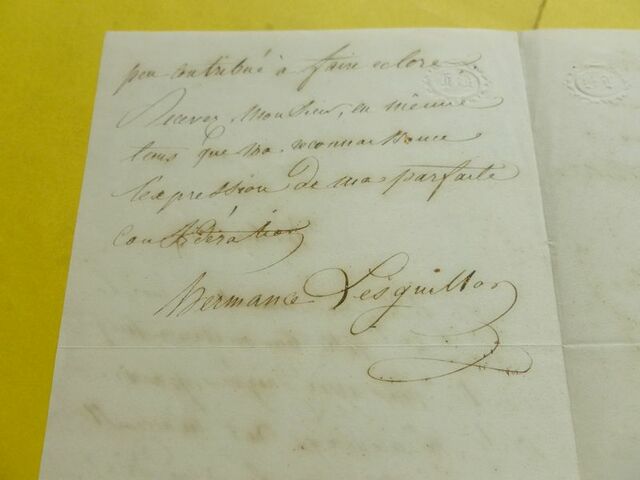 peu contribué à faire eclore
Recevez Monsieur, en même
tems que ma reconnaissance
l'expression de ma parfaite
considération
Hermance Lesguillon